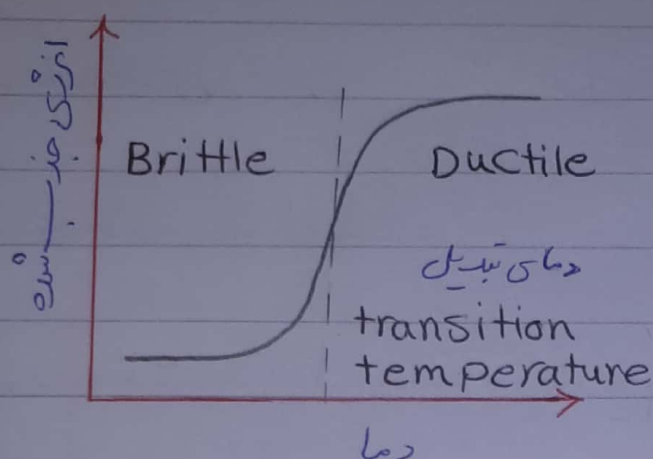 انرژی جذب شده
Brittle
Ductile
دمای تبدیل
transition
temperature
دما